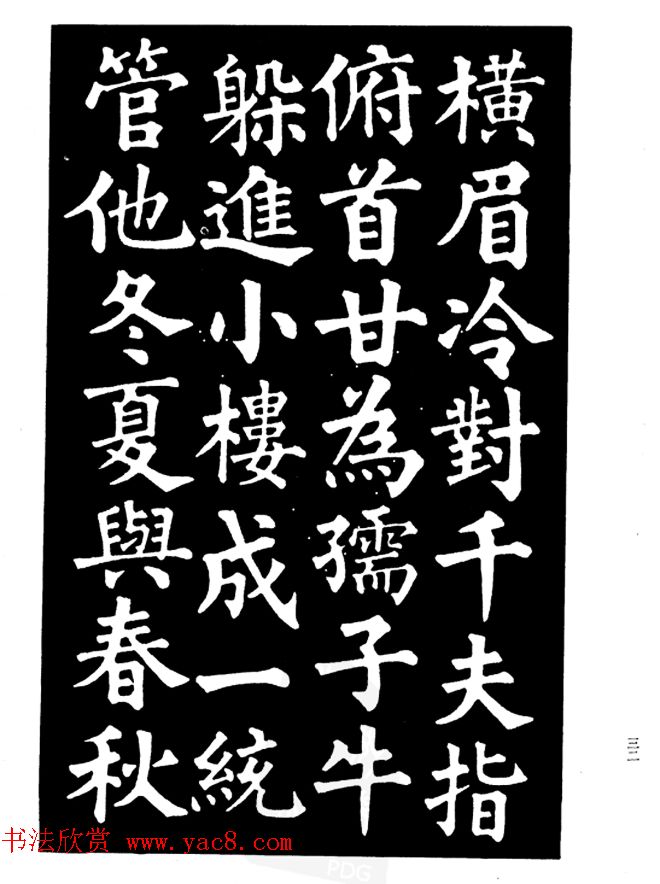 橫眉冷對千夫指
俯首甘為孺子牛
躲進小樓成一統
管他冬夏與春秋
三三一
书法欣赏 www.yac8.com
PDG